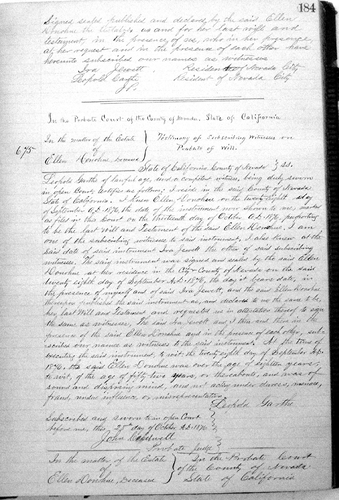 184
Signed sealed published and declared by the said Ellen
Donohue the Testatrix as and for her last will and
testament, in the presence of us, who in her presence,
at her request and in the presence of each other have
hereunto subscribed our names as witnesses
Resident of Nevada City
Leopold Garthe Resident of Nevada City
J.P.
In the Probate Court of the County of Nevada, State of California
In the matter of the Estate
of
Ellen Donohue, Deceased
Testimony of Subscribing Witness on
Probate of Will.
675
State of California, County of Nevada } SS.
Leopold Garthe of lawful age, and a competent witness, being duly sworn
in open Court, testifies as follows; I reside in the said County of Nevada
State of California. I knew Ellen Donohue on the twenty eighth day
of September A.D. 1876, the date of the instrument now shown to me
as filed in this Court on the Thirteenth day of October A.D. 1876, purporting
to be the last Will and Testament of the said Ellen Donohue, I am
one of the subscribing witnesses to said instrument, I also knew at the
said date of said instrument the other of said subscribing
witnesses. The said instrument was signed and sealed by the said Ellen
Donohue at her residence in the City County of Nevada on the said
twenty eighth day of September A.D. 1876, the day it bears date, in
the presence of myself and of said and the said Ellen Donohue
thereupon published the said instrument as, and declared to us the same to be,
her last Will and Testament and requested us in attestation thereof to sign
the same as witnesses. The said and I then and there in the
presence of the said Ellen Donohue and in the presence of each other, sub-
scribed our names as witnesses to the said instrument. At the time of
executing the said instrument, to wit: the twenty eighth day of September A.D.
1876, the said Ellen Donohue was over the age of eighteen years
to wit, of the age of fifty two years or thereabouts, and was of
sound and disposing mind, and not acting under duress, menace,
fraud, undue influence, or misrepresentation.
Leopold Garthe
Subscribed and sworn to in open Court
before me, this day of October A.D. 1876
John Caldwell
Probate Judge
In the matter of the Estate
of
Ellen Donohue, Deceased
In the Probate Court
of the County of Nevada
State of California